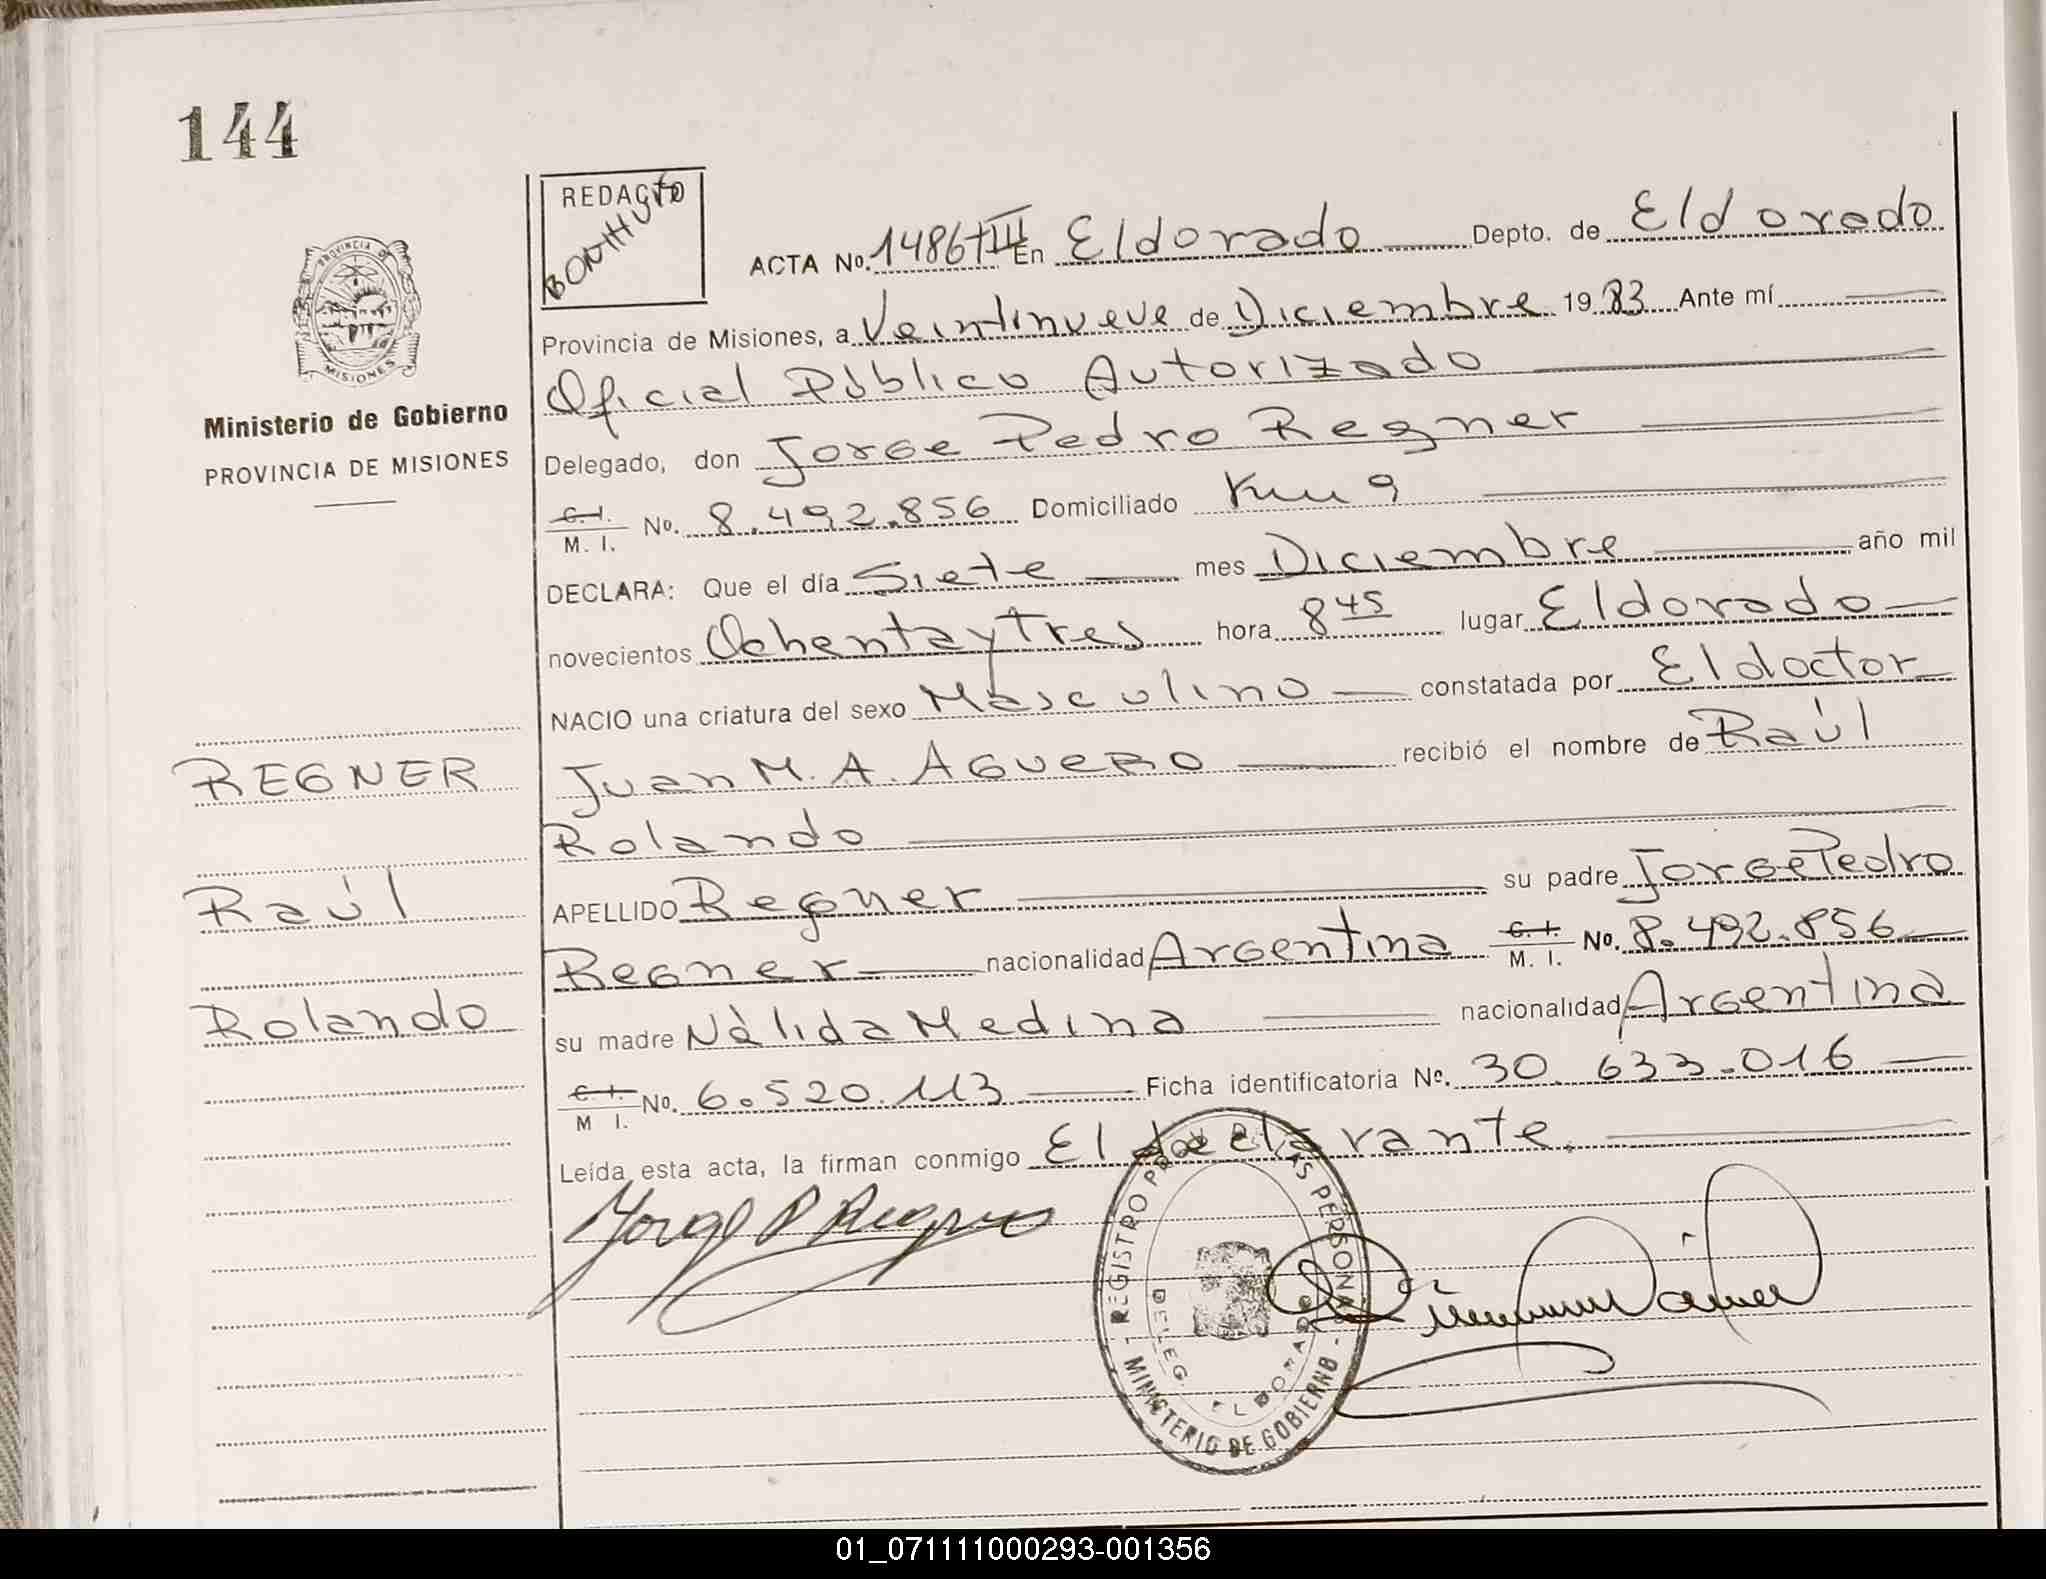 144
REDACTO
BONIHUTO
PROVINCIA DE
MISIONES
Ministerio de Gobierno
PROVINCIA DE MISIONES
ACTA No. 1486 T III En Eldorado Depto. de Eldorado
Provincia de Misiones, a Veintinueve de Diciembre 1983 Ante mí
Oficial Público Autorizado
Delegado, don Jorge Pedro Regner
C. I. / M. I. No. 8.492.856 Domiciliado Km 9
DECLARA: Que el día Siete mes Diciembre año mil
novecientos Ochenta y Tres hora 8 45 lugar Eldorado
NACIO una criatura del sexo Masculino constatada por El doctor
Juan M. A. AGUERO recibió el nombre de Raúl
Rolando
APELLIDO Regner su padre Jorge Pedro
Regner nacionalidad Argentina C. I. / M. I. No. 8.492.856
su madre Nélida Medina nacionalidad Argentina
C. I. / M I. No. 6.520.113 Ficha identificatoria No. 30.633.016
Leída esta acta, la firman conmigo El declarante.
REGNER
Raúl
Rolando
Jorge P Regner
REGISTRO PROV. DE LAS PERSONAS
DELEG. ELDORADO
- MINISTERIO DE GOBIERNO -
01_071111000293-001356